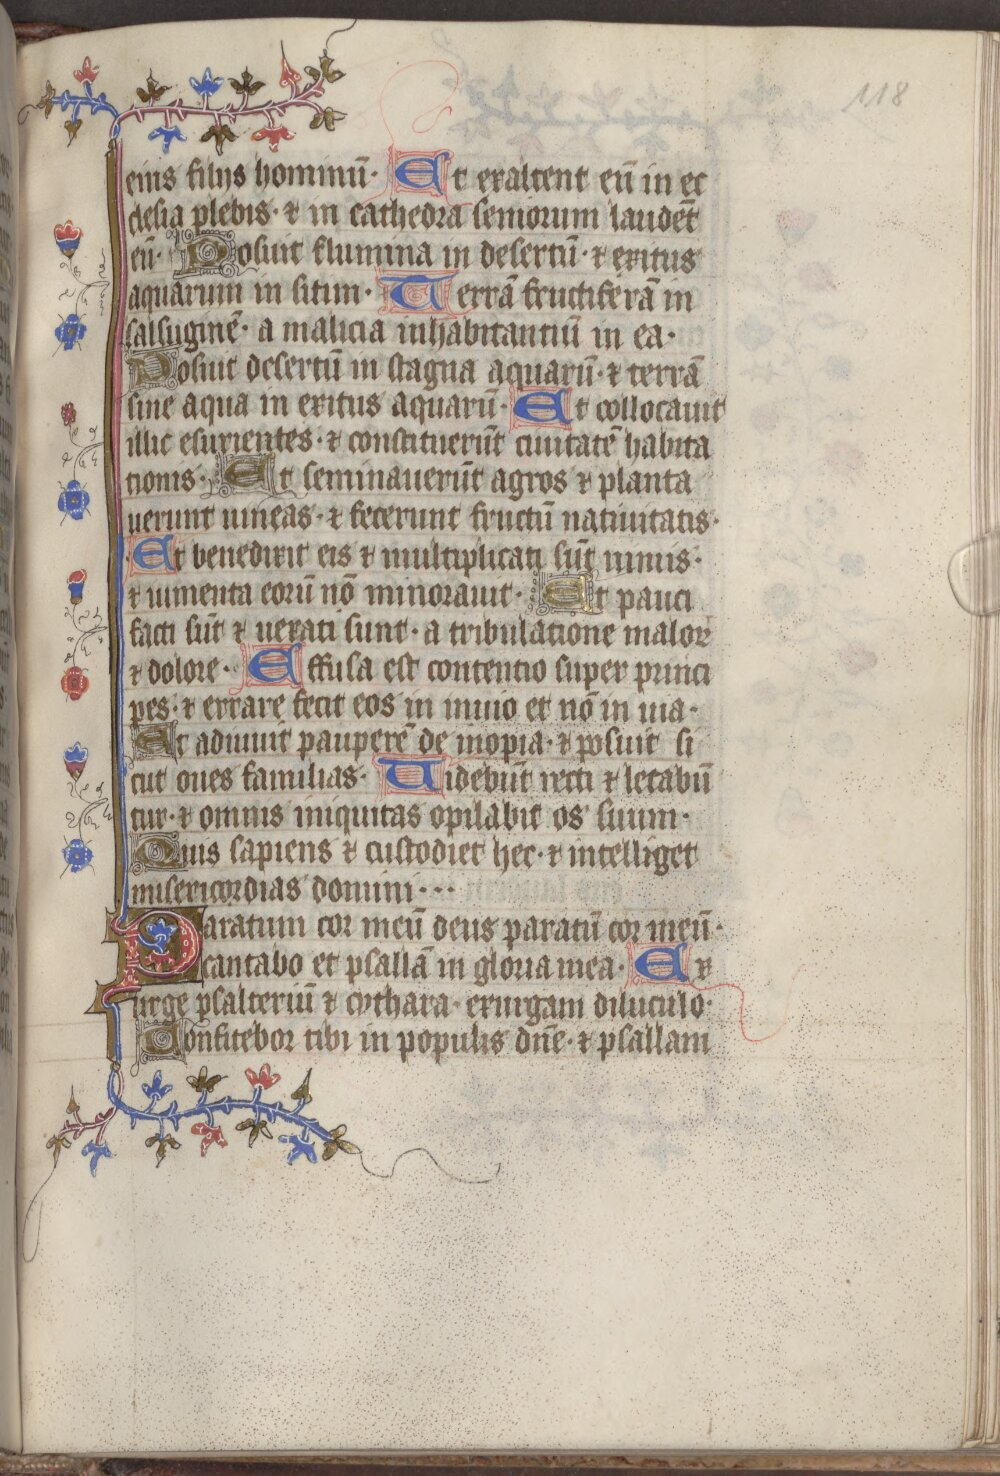 118
eius filijs hominū· Et exaltent eū in ec
clesia plebis· ⁊ in cathedra seniorum laudēt
eū· Posuit flumina in desertū· ⁊ exitus
aquarum in sitim· Terrā fructiferā in
salsuginē· a malicia inhabitantiū in ea·
Posuit desertū in stagna aquarū· ⁊ terrā
sine aqua in exitus aquarū· Et collocauit
illic esurientes· ⁊ constituerūt ciuitatē habita
tionis· Et seminauerūt agros ⁊ planta
uerunt uineas· ⁊ fecerunt fructū natiuitatis·
Et benedixit eis ⁊ multiplicati sūt nimis·
⁊ iumenta eorū nō minorauit· Et pauci
facti sūt ⁊ uexati sunt· a tribulatione maloꝝ
⁊ dolore· Effusa est contentio super princi
pes· ⁊ errare fecit eos in inuio et nō in uia·
Et adiuuit pauperē de inopia· ⁊ posuit si
cut oues familias· Uidebūt recti ⁊ letabū
tur· ⁊ omnis iniquitas opilabit os suum·
Quis sapiens ⁊ custodiet hec· ⁊ intelliget
misericordias domini···
Paratum cor meū deus paratū cor meū·
cantabo et psallā in gloria mea· Ex
urge psalteriū ⁊ cythara· exurgam diluculo·
Confitebor tibi in populis dn̄e· ⁊ psallam